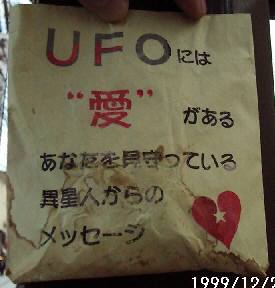 UFOには
“愛”がある
あなたを見守っている
異星人からの
メッセージ
1999/12/2